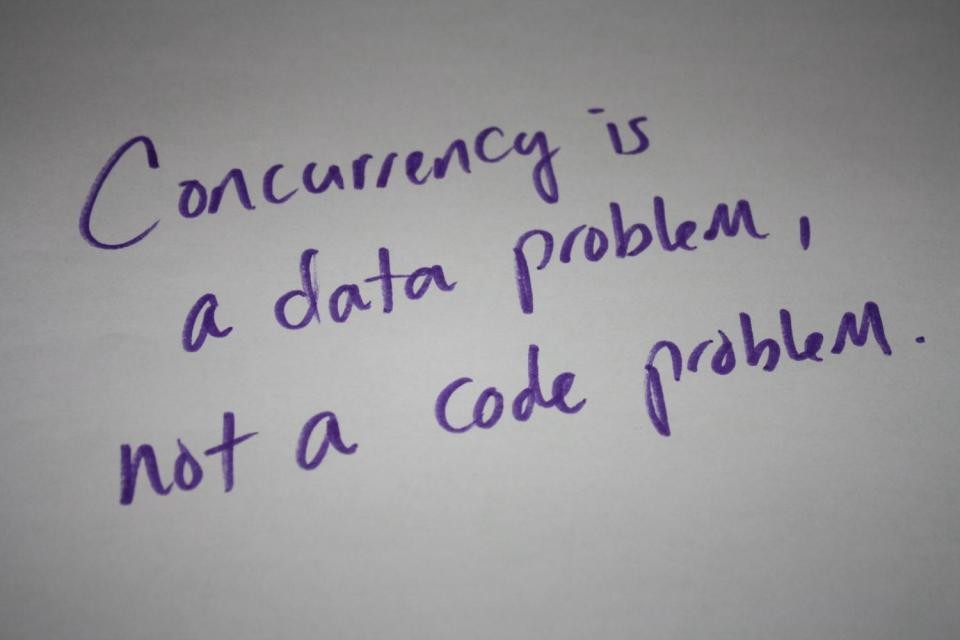 Concurrency is
a data problem,
not a code problem.